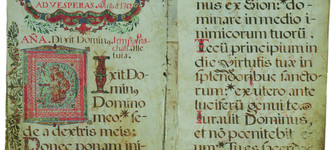 AD VESPERAS
AÑA. Dixit Domin9
Ixit Do
min9
Domino
meo: se
de a dextris meis:
Donec ponam ini
nus ex Sion: do
minare in medio
inimicorum tuorũ
Tecũ principium in
die virtutis tuæ in
splendoribus sancto
rum: ex utero ante
luciferũ genui te
Iurauit Dominus,
et non pœnitebit e